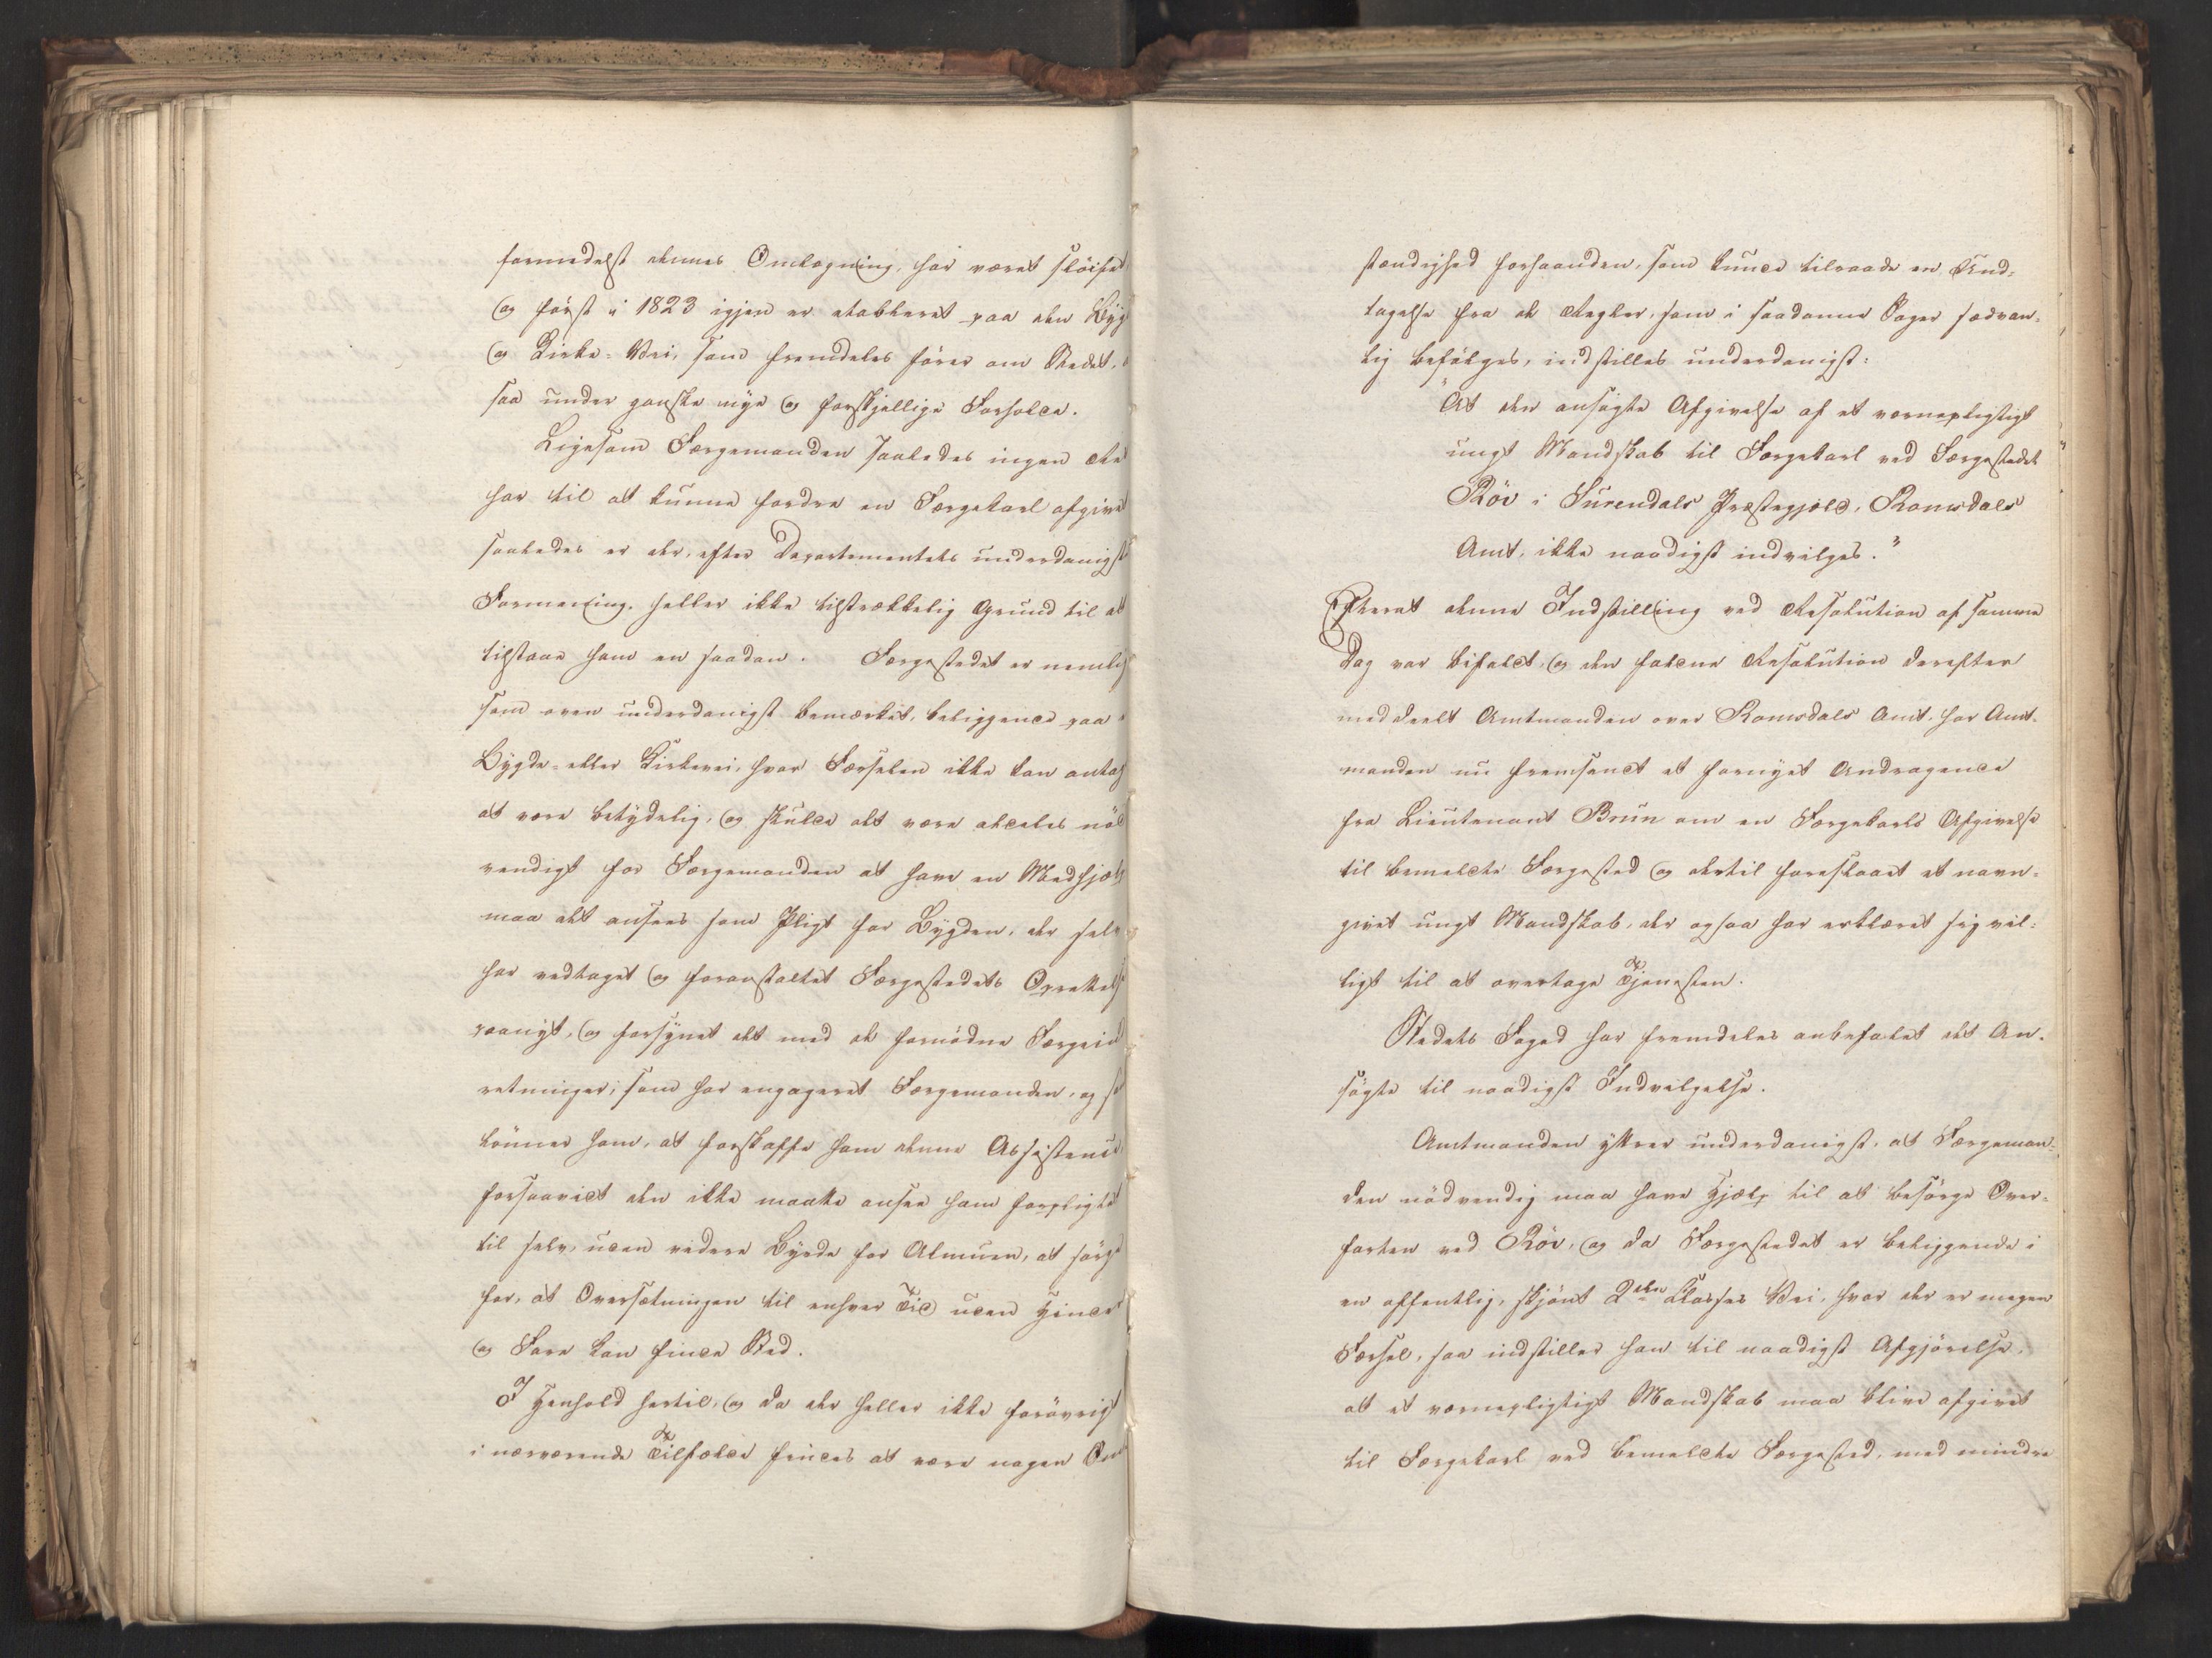 formedelst dennes Omlægning, har været sløifet
og først i 1823 igjen er etableret paa den Byg
og Kirke-Vei, som fremdeles fører om Stedet,
saa under ganske nye og forskjellige Forholde.
Ligesom Færgemanden saaledes ingen Ret
har til at kunne fordre en Færgekarl afgivet
saaledes er der, efter Departementets underdanigst
Formening, heller ikke tilstrækkelig Grund til at
tilstaae ham en saadan. Færgestedet er nemlig
som oven underdanigst bemærket, beliggende paa
Bygde- eller Kirkevei, hvor Færselen ikke kan antag
at være betydelig, og skulde det være aldeles nød
vendigt for Færgemanden at have en Medhjælp
maa det ansees som Pligt for Bygden, der selv
har vedtaget og foranstaltet Færgestedets Oprettelse
paanyt, og forsynet det med de fornødne Færgeind
retninger, som har engageret Færgemanden, og
lønner ham, at forskaffe ham denne Assistence,
forsaavidt den ikke maatte ansee ham forpligtet
til selv, uden videre Byrde for Almuen, at sørge
for, at Oversætningen til enhver Tid uden Hinder
og Fare kan finde Sted.
I Henhold hertil, og da der heller ikke forøvrigt
i nærværende Tilfælde findes at være nogen Om
stændighed forhaanden, som kunde tilraade en Und-
tagelse fra de Regler, som i saadanne Sager sædvan-
lig befølges, indstilles underdanigst:
"At den ansøgte Afgivelse af et værnepligtigt
ungt Mandskab til Færgekarl ved Færgestedet
Røv i Surendals Præstegjæld, Romsdals
Amt, ikke naadigst indvilges."
Efterat denne Indstilling ved Resolution af samme
Dag var bifaldt, og den faldne Resolution derefter
meddeelt Amtmanden over Romsdals Amt, har Amt-
manden nu fremsendt et fornyet Andragende
fra Lieutenant Brun om en Færgekarls Afgivelse
til bemeldte Færgested og dertil foreslaaet et navn-
givet ungt Mandskab, der ogsaa har erklæret sig vil-
ligt til at overtage Tjenesten.
Stedets Foged har fremdeles anbefalet det An-
søgte til naadigst Indvilgelse.
Amtmanden yttrer underdanigst, at Færgeman-
den nødvendig maa have Hjælp til at besørge Over-
farten ved Røv, og da Færgestedet er beliggende i
en offentlig, skjønt 2den Klasses Vei, hvor der er megen
Færsel, saa indstiller han til naadigst Afgjørelse,
at et værnepligtigt Mandskab maa blive afgivet
til Færgekarl ved bemeldte Færgested, med mindre